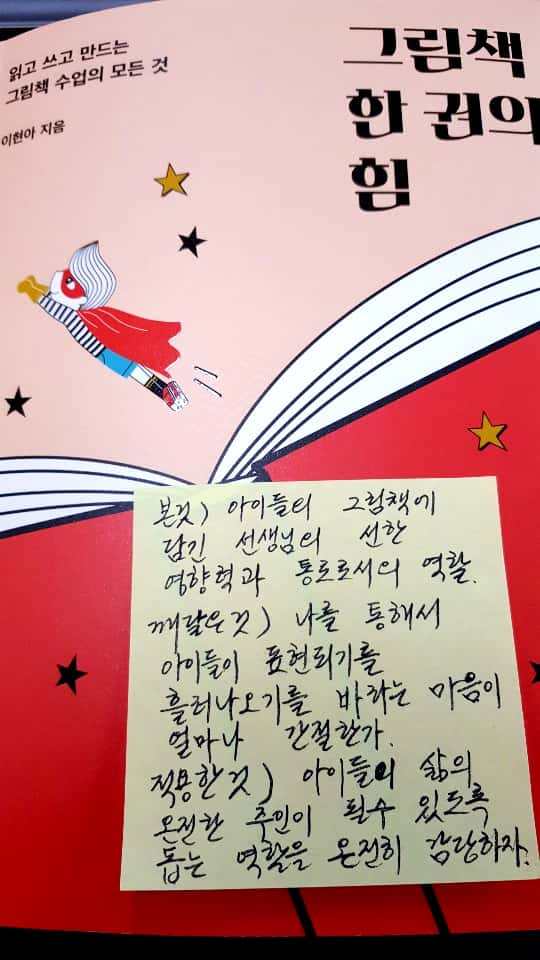 읽고 쓰고 만드는
그림책 수업의 모든 것
이현아 지음
그림책
한 권의
힘
본것) 아이들의 그림책에
담긴 선생님의 선한
영향력과 통로로서의 역할.
깨달은것) 나를 통해서
아이들이 표현되기를
흘러나오기를 바라는 마음이
얼마나 간절한가.
적용한것) 아이들의 삶의
온전한 주인이 될수 있도록
돕는 역할을 온전히 감당하자.